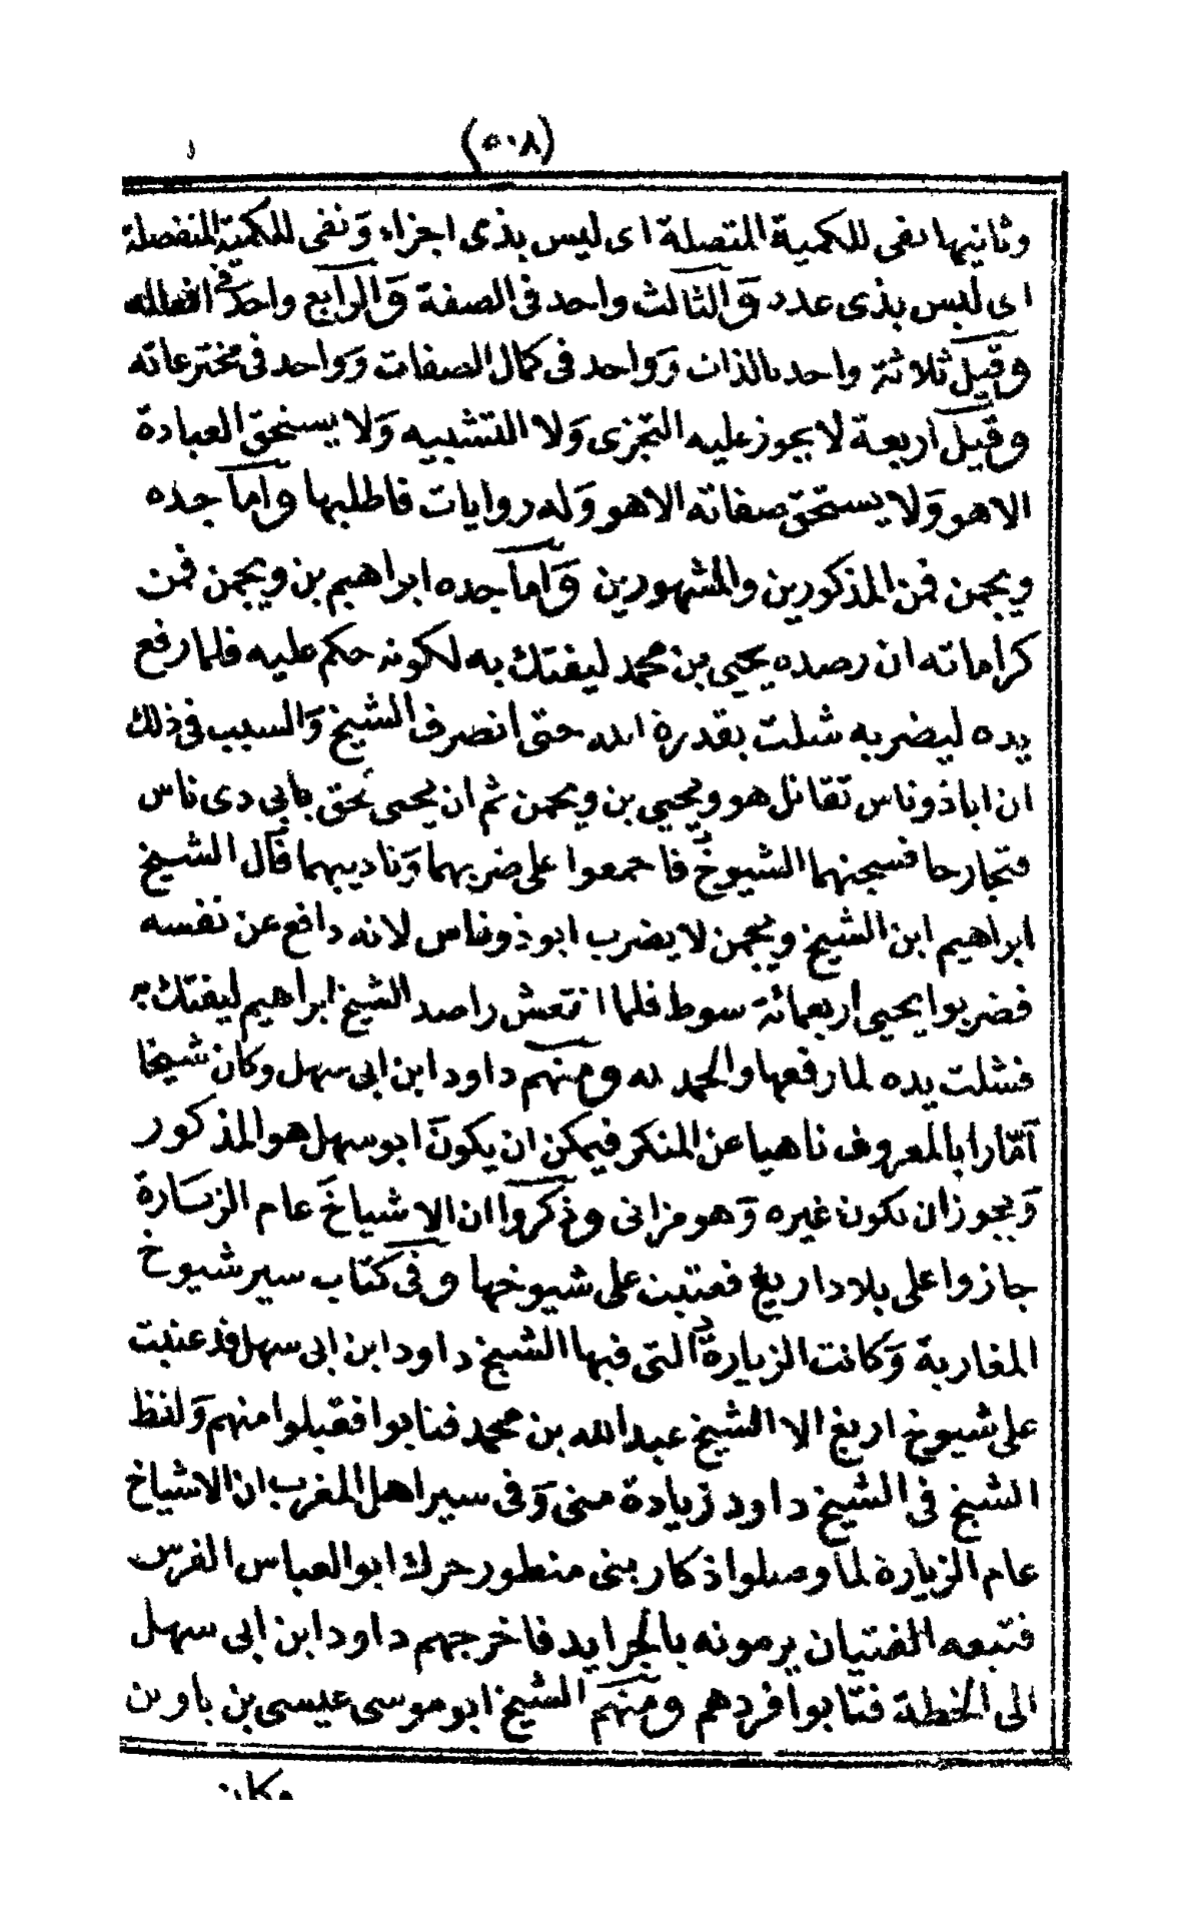 (٥٠٨)
وثانيها نفى للكمية المتصلة اى ليس بذى اجزاء وَنفى للكمية المنفصلة
اى ليس بذى عدد وَالثالث واحد فى الصفة وَالرابع واحد فى افعاله
وقيل ثلاثة واحد بالذات وَواحد فى كمال الصفات وَواحد فى مخترعاته
وقيل اربعة لا يجوز عليه التجزى وَلا التشبيه وَلا يستحق العبادة
الاهو وَلا يستحق صفاته الاهو وَله روايات فاطلبها وامّا جده
ويجمن فمن المذكورين والمشهورين وَامّا جده ابراهيم بن ويجمن فمن
كراماته ان رصده يحيى بن محمد ليفتك به لكونه حكم عليه فلما رفع
يده ليضربه شلت بقدرة الله حتى انصرف الشيخ وَالسبب فى ذلك
ان اباذوناس تقاتل هو ويحيى بن ويجمن ثم ان يحيى لحق بابى دى ناس
فتجارحا فسجنهما الشيوخ فاجمعوا على ضربهما وَناديبهما فقال الشيخ
ابراهيم ابن الشيخ ويجمن لا يضرب ابوذوناس لانه دافع عن نفسه
فضربوا يحيى اربعمائة سوط فلما انتعش راصد الشيخ ابراهيم ليفتك به
فشلت يده لما رفعها والحمد لله ومنهم داود ابن ابى سهل وكان شيخا
آمّارا بالمعروف ناهيا عن المنكر فيمكن ان يكون ابو سهل هو المذكور
وَيجوز ان يكون غيره وَهو مزاتى وذكروا ان الاشياخ عام الزيارة
جازوا على بلاد اريغ فعتبت على شيوخها وفى كتاب سير شيوخ
المغاربة وَكانت الزيارة التى فيها الشيخ داود ابن ابى سهل قد عتبت
على شيوخ اريغ الا الشيخ عبد الله بن محمد فتابوا فقبلوا منهم وَلفظ
الشيخ فى الشيخ داود زيادة منى وَفى سير اهل المغرب ان الاشياخ
عام الزيارة لما وصلوا ذكار بنى منطور حرك ابو العباس الفرس
فتبعه الفتيان يرمونه بالجرايد فاخرجهم داود ابن ابى سهل
الى الخطة فتابوا فردهم ومنهم الشيخ ابو موسى عيسى بن باوين
وكان